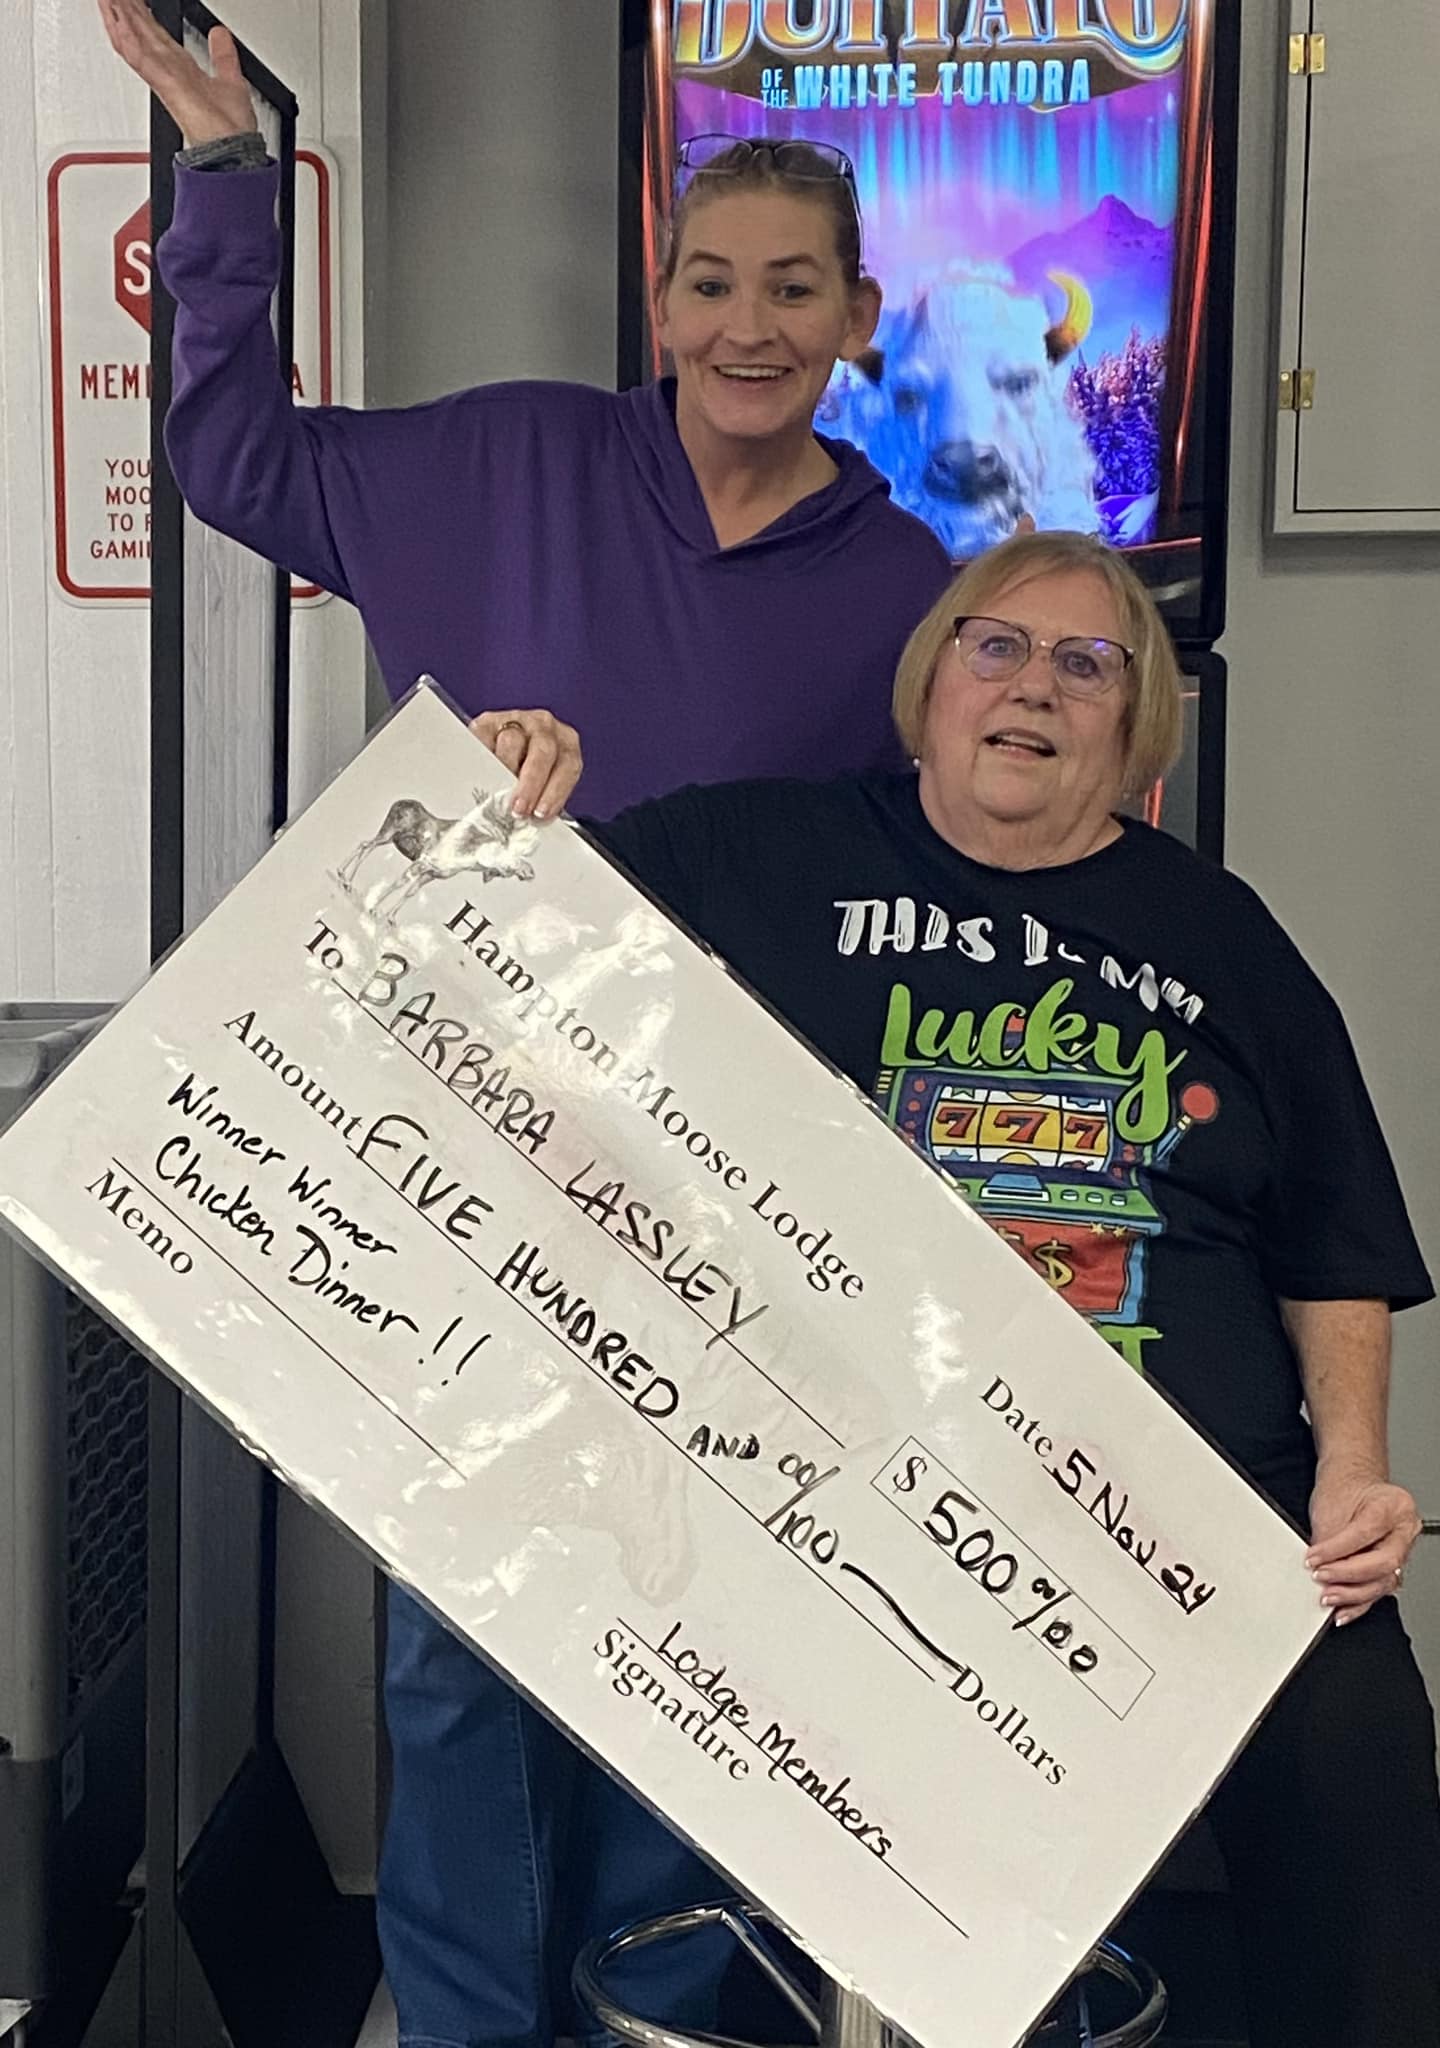 BUFFALO
OF
THE WHITE TUNDRA
MEM
A
YOU
MOO
TO
GAMI
THIS IS MY
Lucky
777
$
Hampton Moose Lodge
Date 5 Nov 24
To BARBARA LASSLEY
$ 500 00/00
Amount FIVE HUNDRED AND 00/100 Dollars
Winner Winner
Chicken Dinner!!
Memo
Lodge Members
Signature